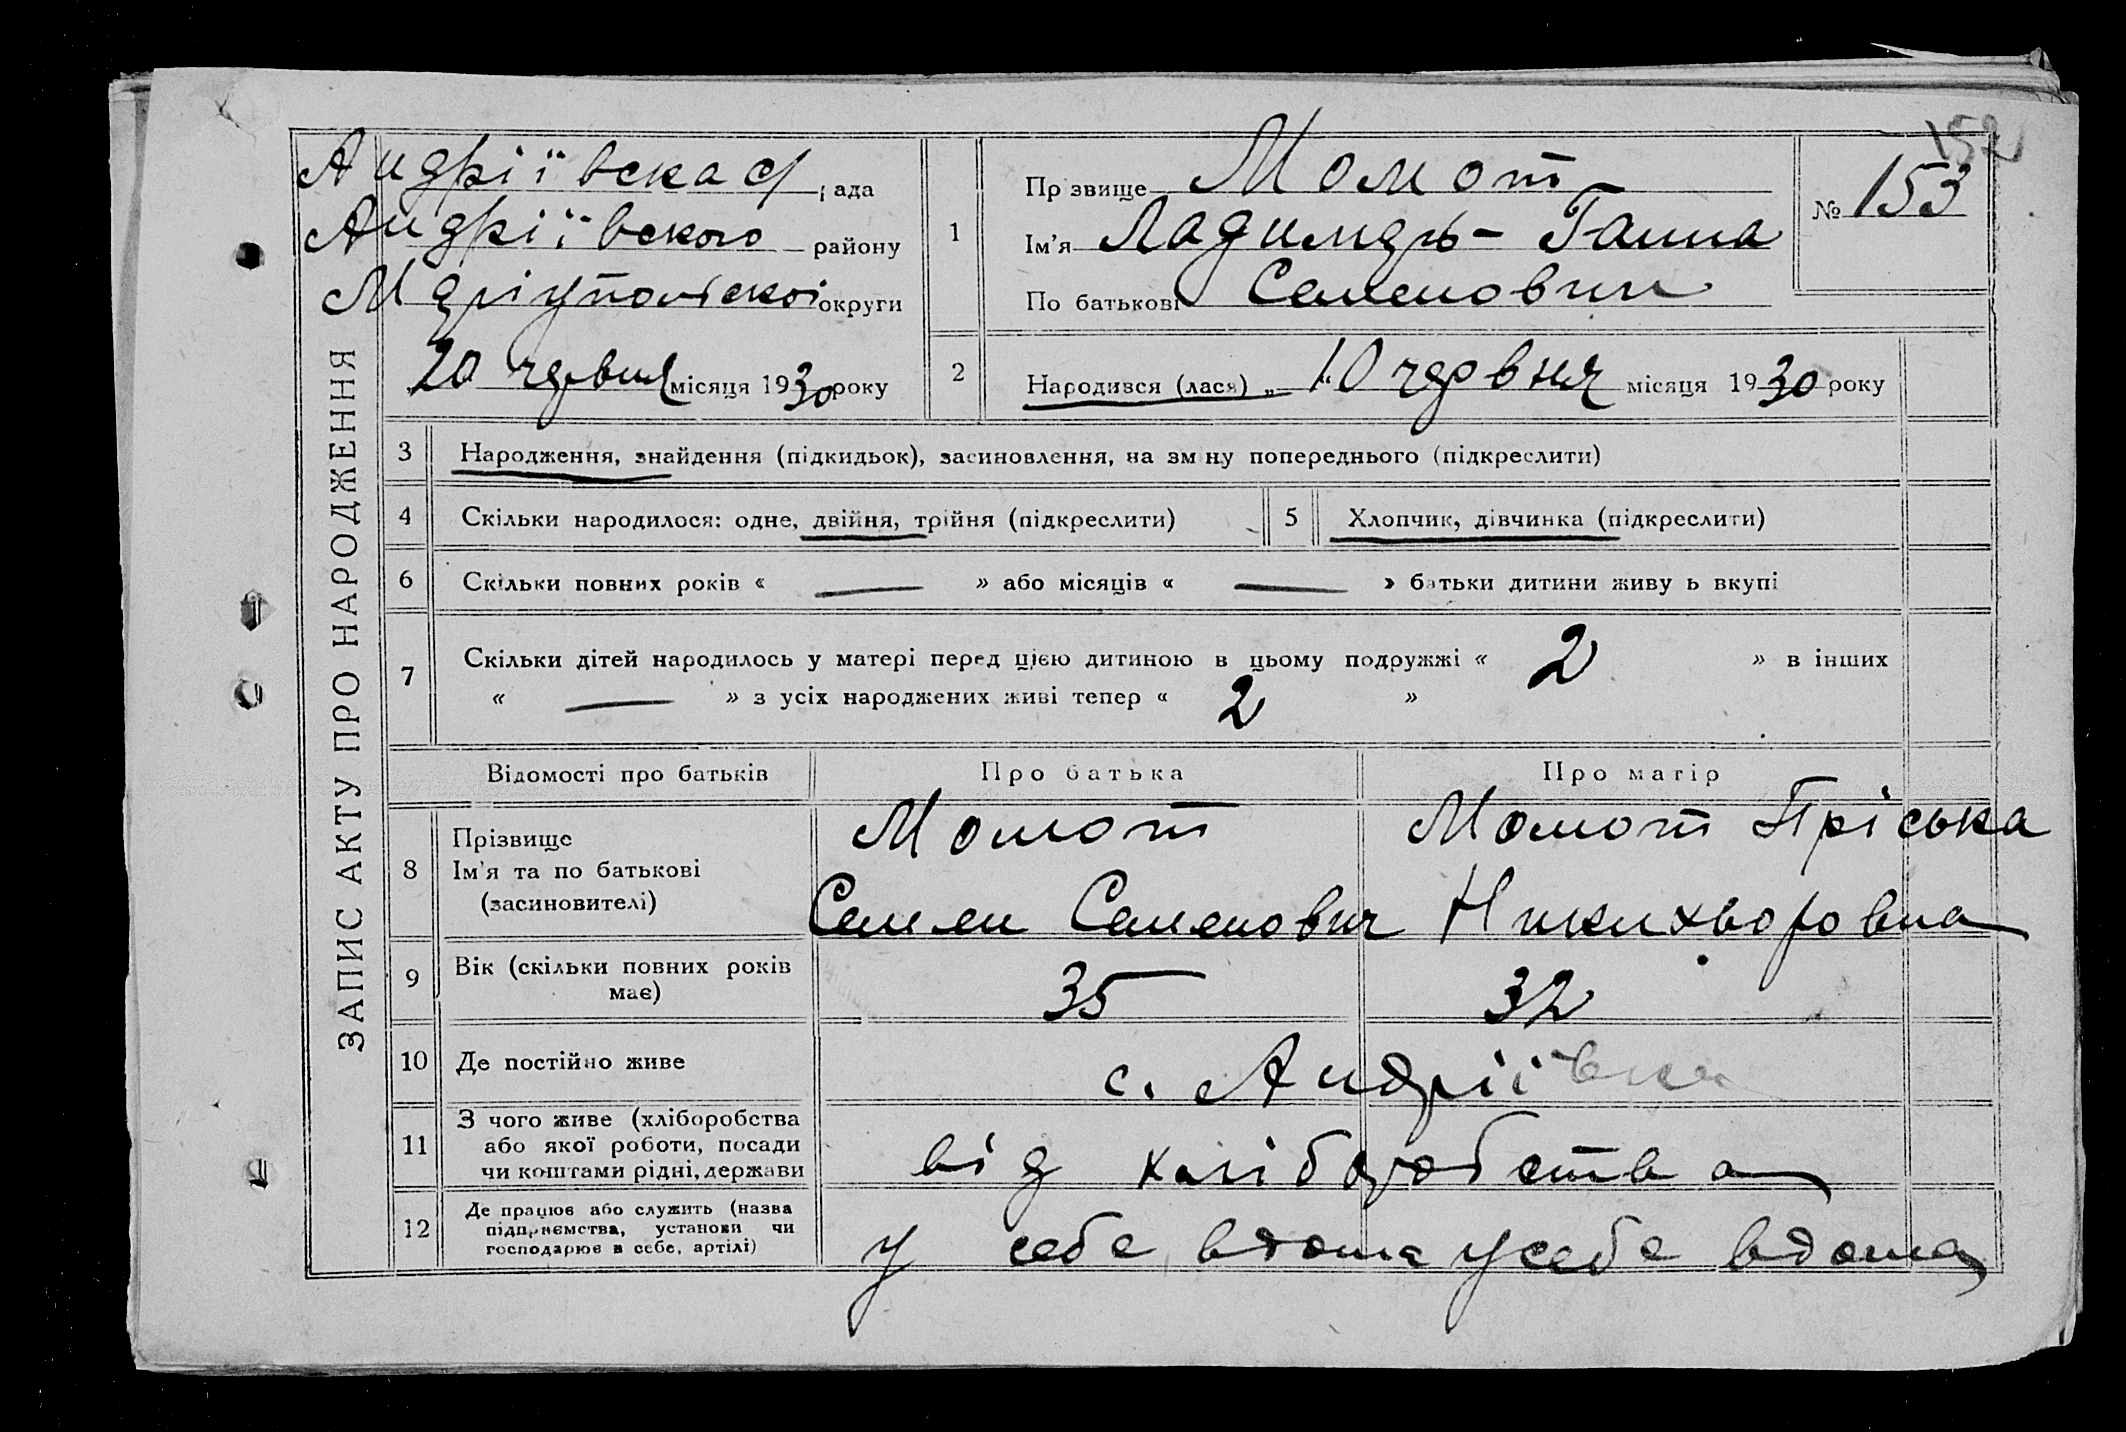 ЗАПИС АКТУ ПРО НАРОДЖЕННЯ
Андріївска с/рада
Андріївского району
Мдріупольскої округи
20 червня місяця 1930 року
1
Прізвище Момот
Ім'я Ладимдрь - Ганна
По батькові Семенович
152
№ 153
2 Народився (лася) „10" червня місяця 1930 року
3 Народження, знайдення (підкидьок), засиновлення, на зміну попереднього (підкреслити)
4 Скільки народилося: одне, двійня, трійня (підкреслити)
5 Хлопчик, дівчинка (підкреслити)
6 Скільки повних років « — » або місяців « — » батьки дитини живуть вкупі
7 Скільки дітей народилось у матері перед цією дитиною в цьому подружжі « 2 » в інших
« — » з усіх народжених живі тепер « 2 »
Відомості про батьків Про батька Про матір
8 Прізвище
Ім'я та по батькові
(засиновителі)
Момот
Семен Семенович
Момот Пріська
Никихворовна
9 Вік (скільки повних років
має)
35 32
10 Де постійно живе с. Андріївка
11 З чого живе (хліборобства
або якої роботи, посади
чи коштами рідні, держави
від хліборобства
12 Де працює або служить (назва
підприємства, установи чи
господарює в себе, артілі)
у себе вдома у себе вдома